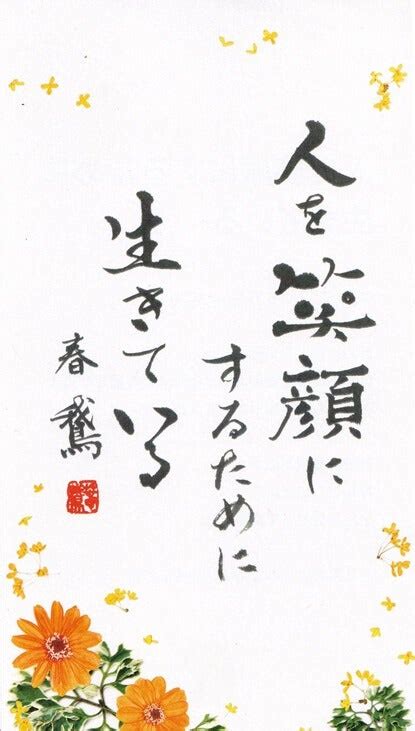 人を笑顔に
するために
生きている
春鵞